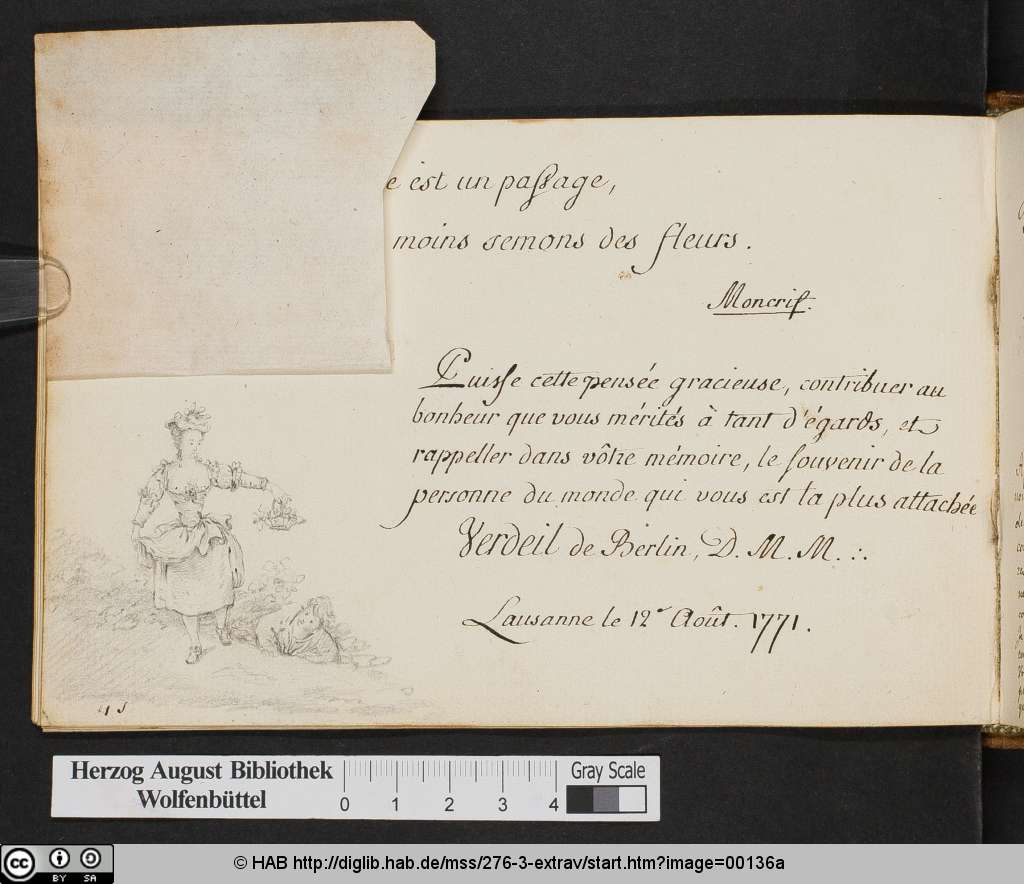 e est un passage,
moins semons des fleurs.
Moncrif.
Puisse cette pensée gracieuse, contribuer au
bonheur que vous mérités à tant d'égards, et
rappeller dans vôtre mémoire, le souvenir de la
personne du monde qui vous est la plus attachée
Verdeil de Berlin, D. M. M. .:.
Lausanne le 12.e Août. 1771.
Herzog August Bibliothek
Wolfenbüttel
0 1 2 3 4
Gray Scale
cc BY SA
© HAB http://diglib.hab.de/mss/276-3-extrav/start.htm?image=00136a